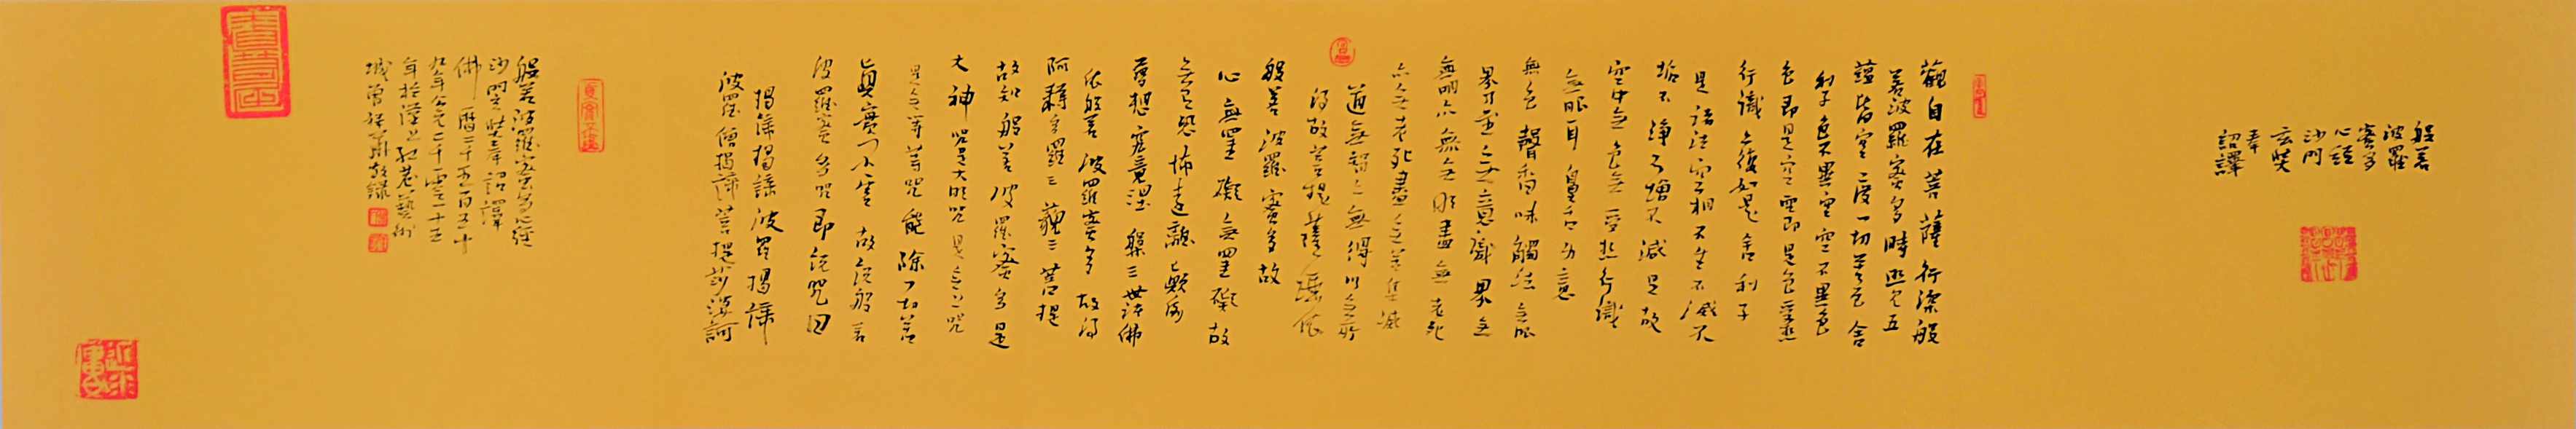 般若
波羅
蜜多
心經
沙門
玄奘
奉
詔譯
觀自在菩薩行深般
若波羅蜜多時照見五
蘊皆空度一切苦厄舍
利子色不異空空不異色
色即是空空即是色受想
行識亦復如是舍利子
是諸法空相不生不滅不
垢不淨不增不減是故
空中無色無受想行識
無眼耳鼻舌身意
無色聲香味觸法無眼
界乃至無意識界無
無明亦無無明盡無老死
亦無老死盡無苦集滅
道無智亦無得以無所
得故菩提薩埵依
般若波羅蜜多故
心無罣礙無罣礙故
無有恐怖遠離顛倒
夢想究竟涅槃三世諸佛
依般若波羅蜜多故得
阿耨多羅三藐三菩提
故知般若波羅蜜多是
大神咒是大明咒是無上咒
是無等等咒能除一切苦
真實不虛故說般若
波羅蜜多咒即說咒曰
揭諦揭諦波羅揭諦
波羅僧揭諦菩提莎婆訶
般若波羅蜜多心經
沙門玄奘奉詔譯
佛曆二千五百五十
九年公元二千零一十五
年於滬上